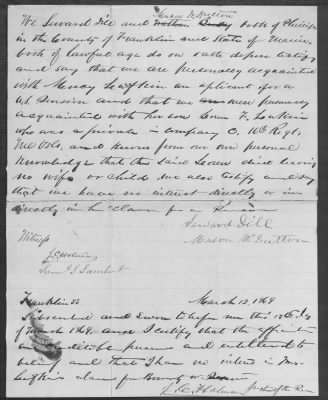 Mason W. Dutton
We Seward Dill and both of Phillips
in the County of Franklin and State of Maine,
both of lawful age do on oath depose testify
and say that we are personally acquainted
with an applicant for a
U.S. Pension and that we were personally
acquainted with her son F.
who was a private in Company G, 16 Regt.
Me Vols. and know from our own personal
knowledge that the said died leaving
no wife or child We also testify and say
that we have no interest directly or in
directly in claim for a
Seward Dill
Mason W. Dutton
Witness
Lambert
Franklin SS March 13, 1869
Subscribed and Sworn to before me this 13th day
of March 1869, and I certify that the affiants
are credible persons and entitled to
belief and that I have no interest in Mrs
claim for Bounty or
Justice of the Peace